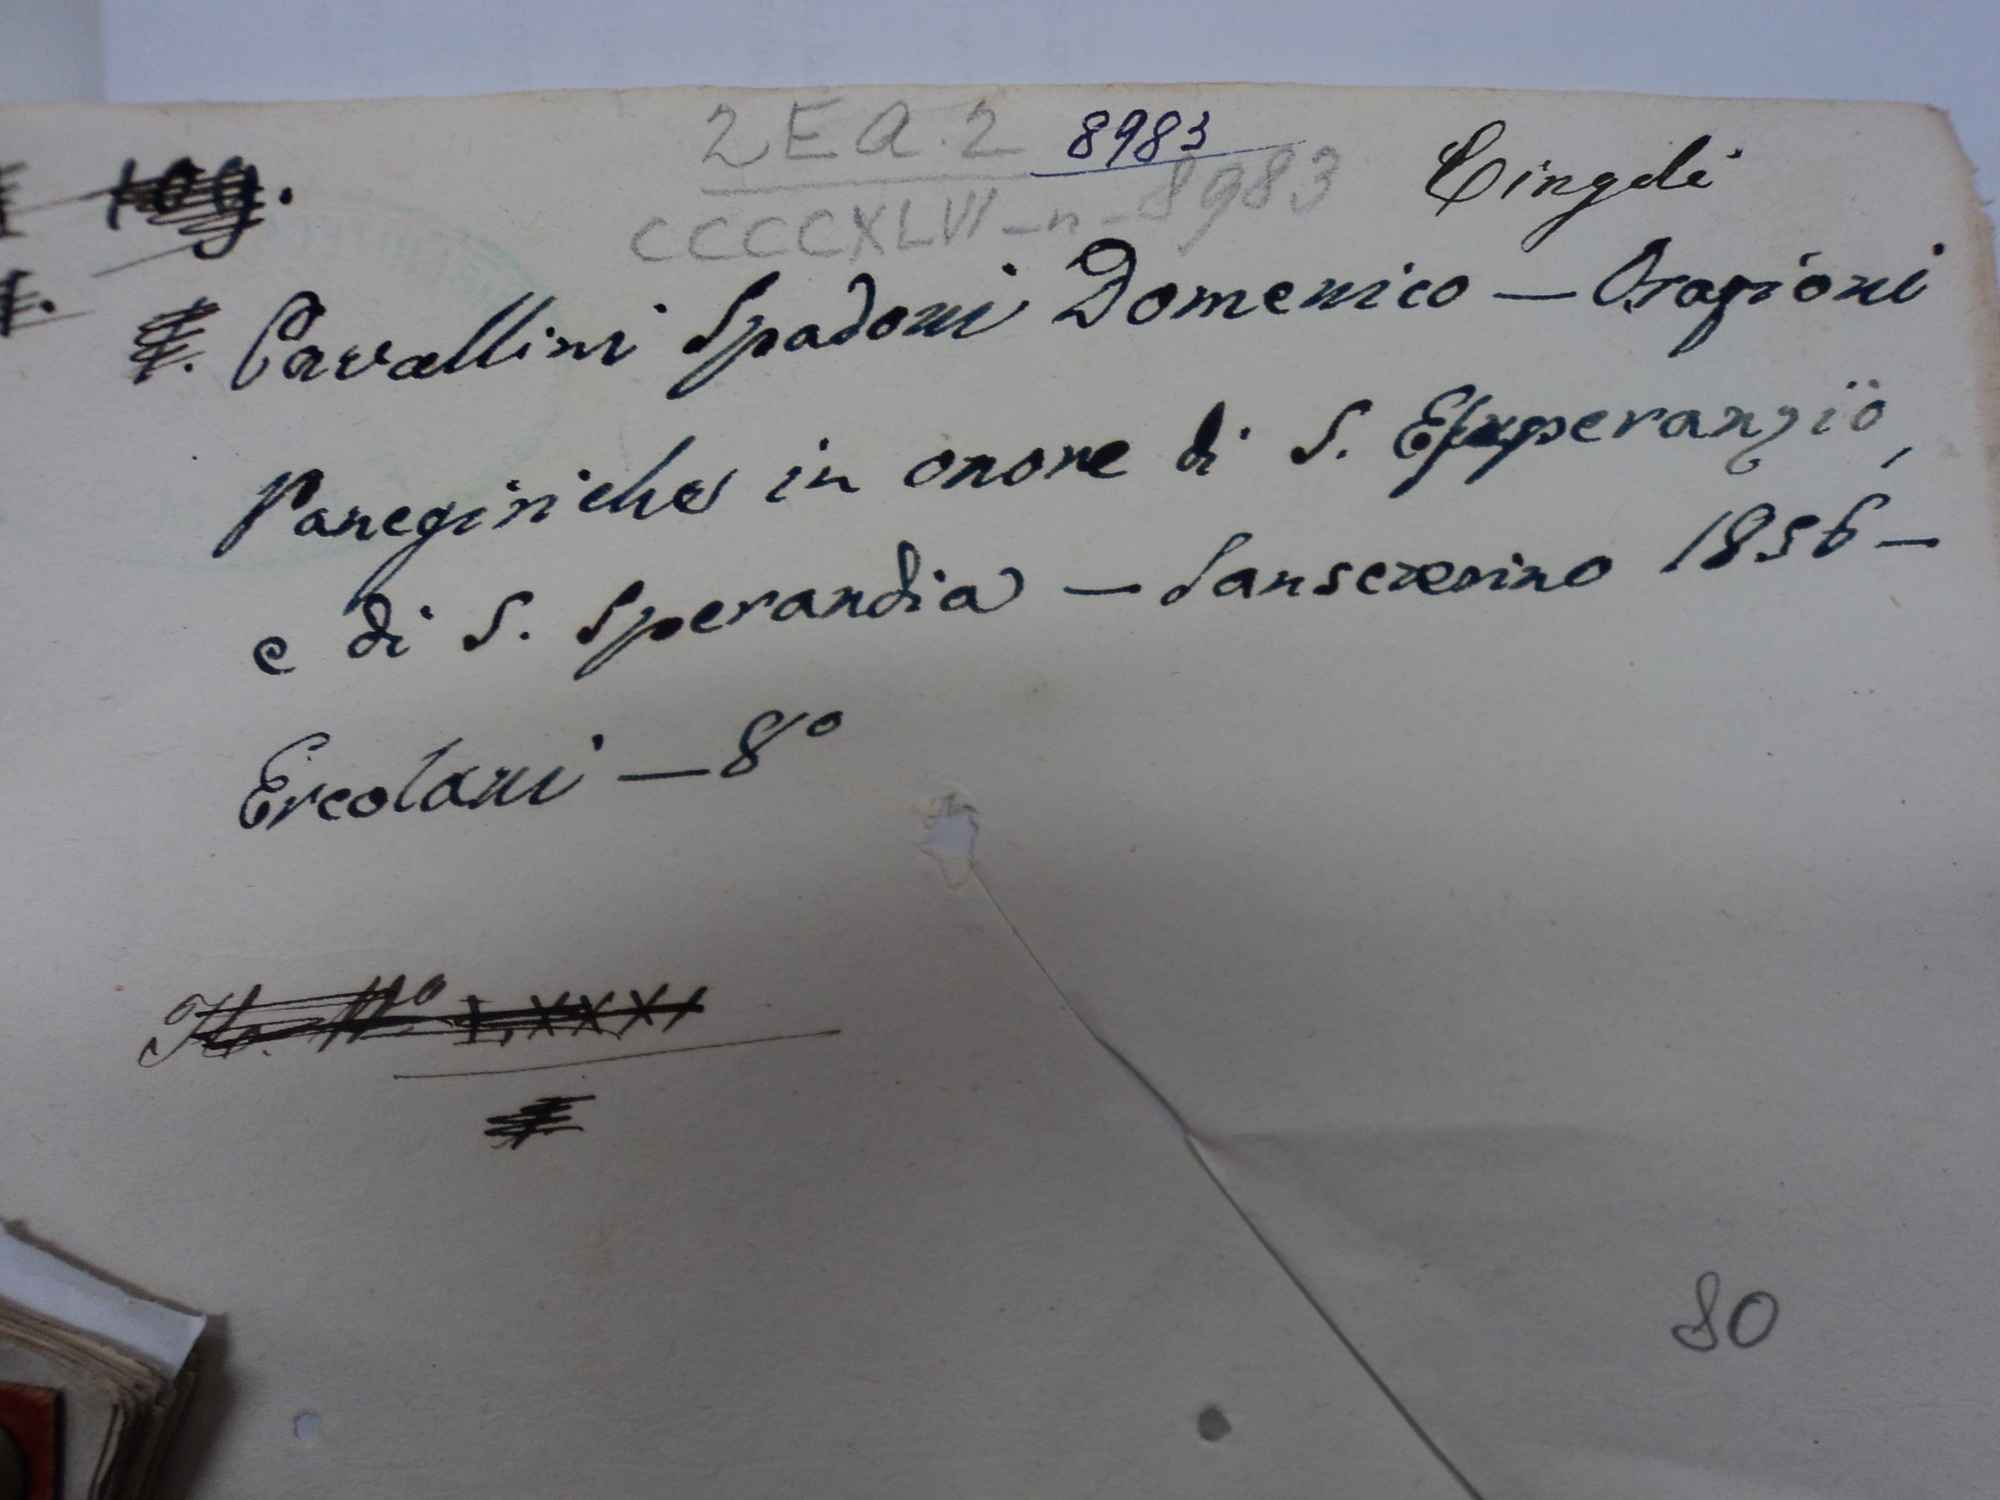 2 E a. 2 8983
CCCCXLVI - n - 8983 Cingoli
109.
Cavallini Spadoni Domenico — Orazioni
Panegiriche in onore di S. Esuperanzio,
e di S. Sperandia — Sanseverino 1856 —
Ercolani — 8º
Nº LXXXI
80